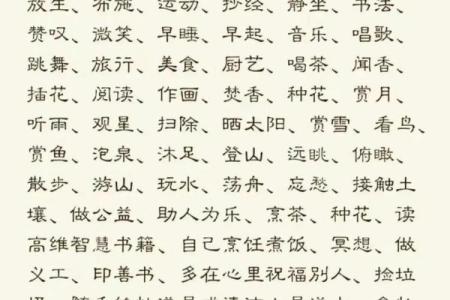 放生、布施、运动、抄经、静坐、书法、
赞叹、微笑、早睡、早起、音乐、唱歌、
跳舞、旅行、美食、厨艺、喝茶、闻香、
插花、阅读、作画、焚香、种花、赏月、
听雨、观星、扫除、晒太阳、赏雪、看鸟、
赏鱼、泡泉、沐足、登山、远眺、俯瞰、
散步、游山、玩水、荡舟、忘愁、接触土
壤、做公益、助人为乐、烹茶、种花、读
高维智慧书籍、自己烹饪煮饭、冥想、做
义工、印善书、多在心里祝福别人、捡垃